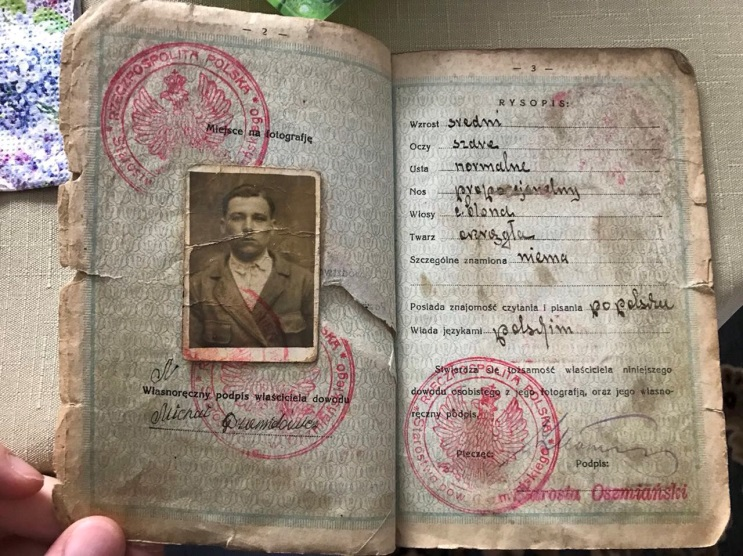 — 2 —
RZECZPOSPOLITA POLSKA
Miejsce na fotografję
Własnoręczny podpis właściciela dowodu
Michał
— 3 —
RYSOPIS:
Wzrost średni
Oczy szare
Usta normalne
Nos proporcjonalny
Włosy c. blond
Twarz okrągła
Szczególne znamiona niema
Posiada znajomość czytania i pisania po polsku
Włada językami polskim
Stwierdza się tożsamość właściciela niniejszego
dowodu osobistego z jego fotografją, oraz jego własno-
ręczny podpis.
Pieczęć:
Podpis:
Starosta Oszmiański